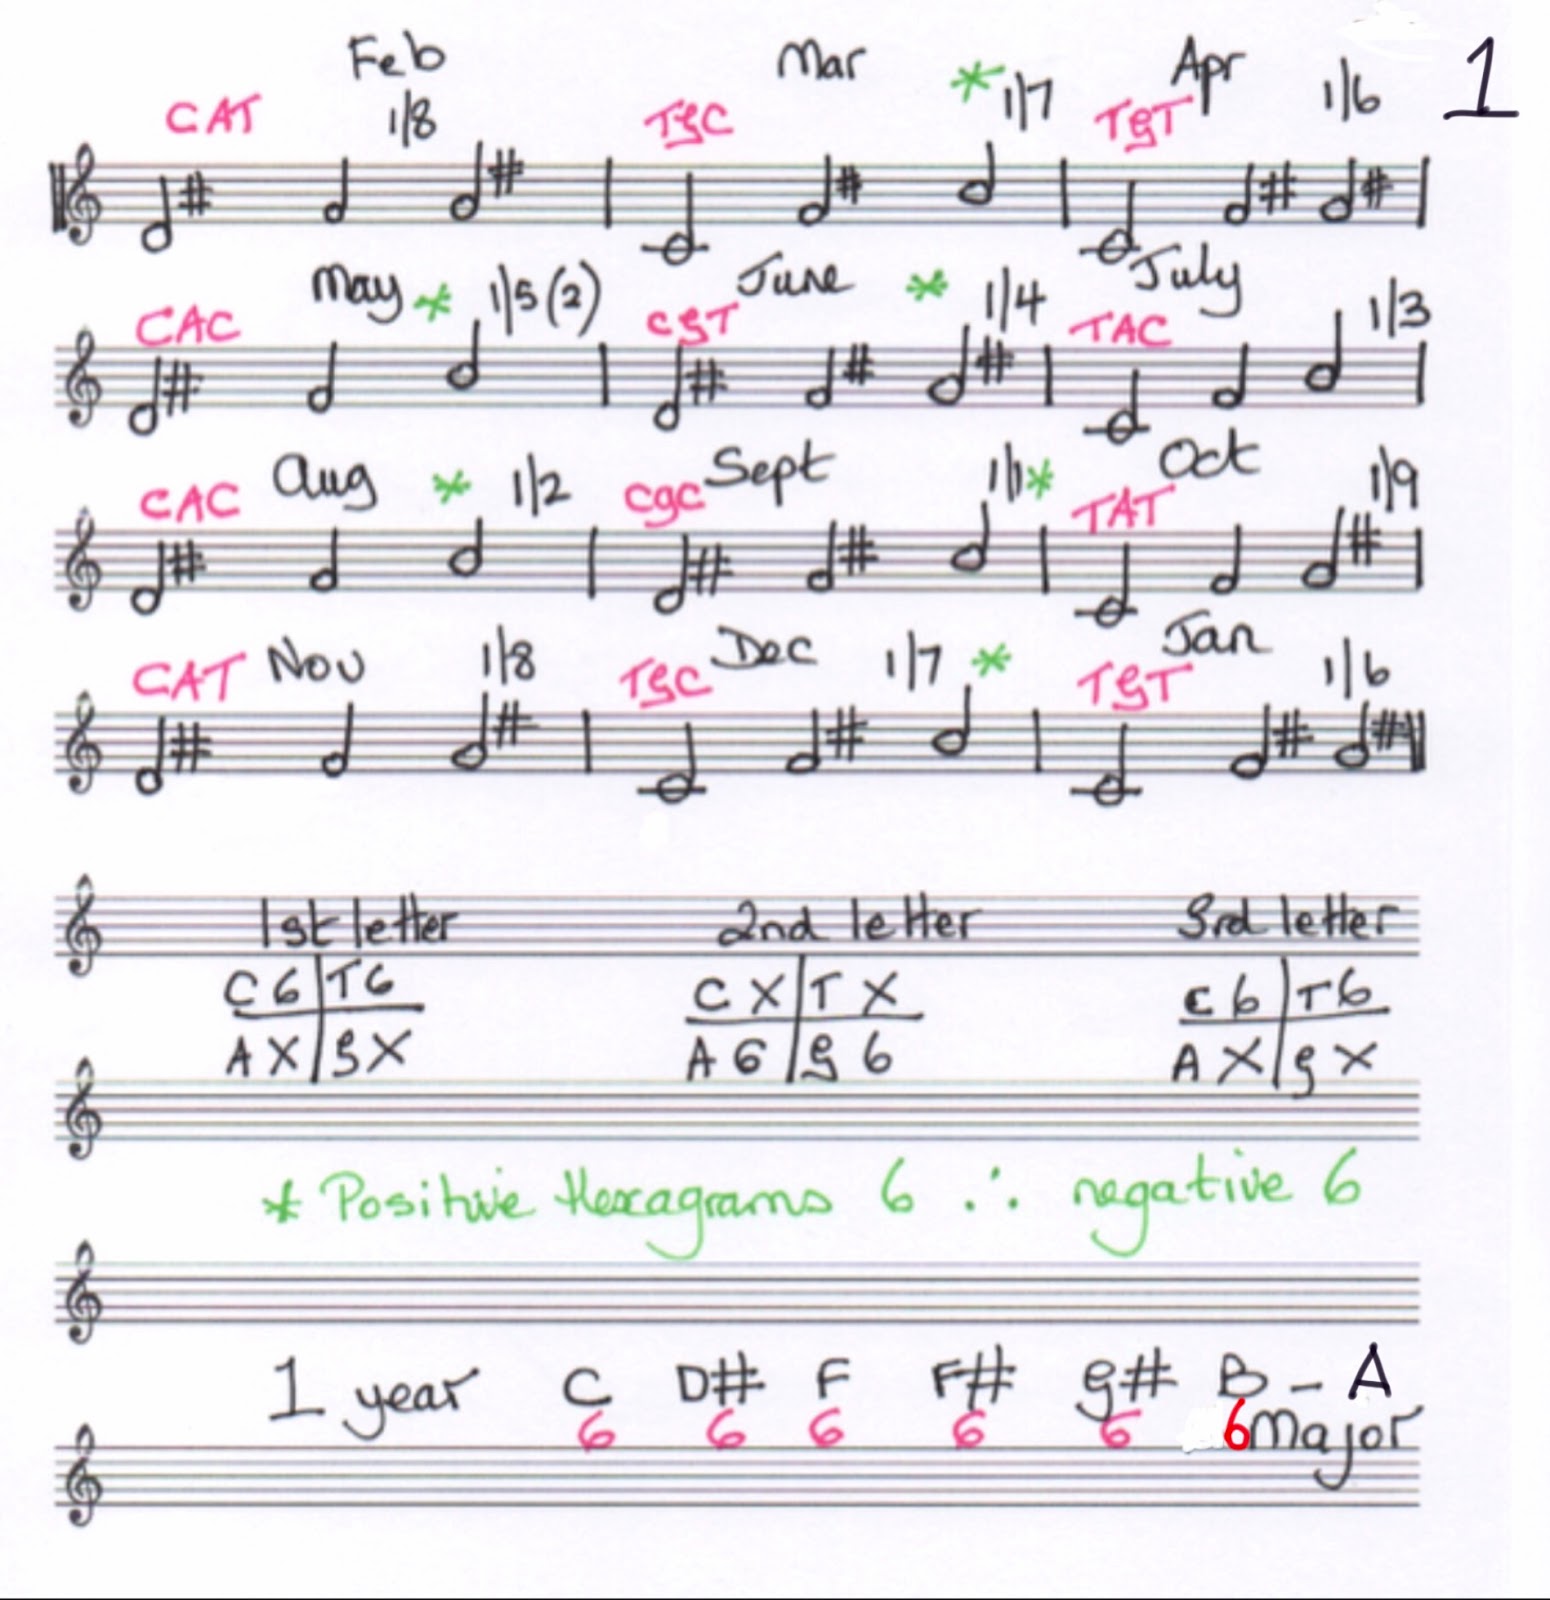 Feb Mar Apr 1
CAT 1/8 TGC * 1/7 TGT 1/6
May * 1/5(2) June * 1/4 July
CAC CGT TAC 1/3
Aug * 1/2 Sept 1/1* Oct 1/9
CAC CGC TAT
Nov 1/8 Dec 1/7 * Jan 1/6
CAT TGC TGT
1st letter 2nd letter 3rd letter
C 6 T 6 C X T X C 6 T 6
A X G X A 6 G 6 A X G X
* Positive Hexagrams 6 ∴ negative 6
1 year C D# F F# G# B - A
6 6 6 6 6 6 Major